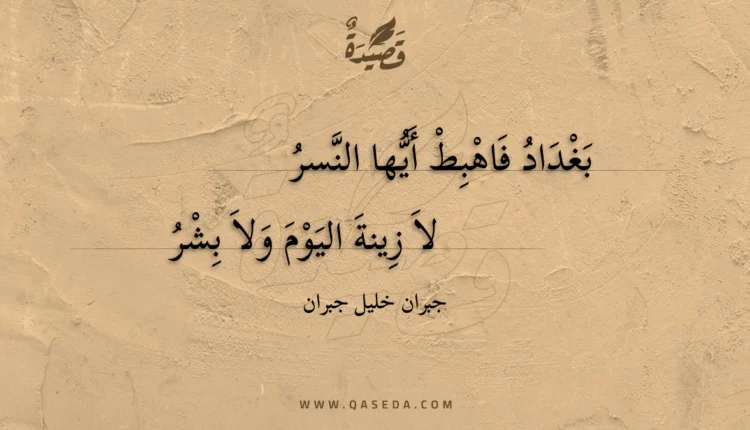 قَصِيْدَةٌ
بَغْدَادُ فَاهْبِطْ أَيُّها النَّسرُ
لاَ زِينةَ اليَوْمَ وَلاَ بِشْرُ
جبران خليل جبران
WWW.QASEDA.COM